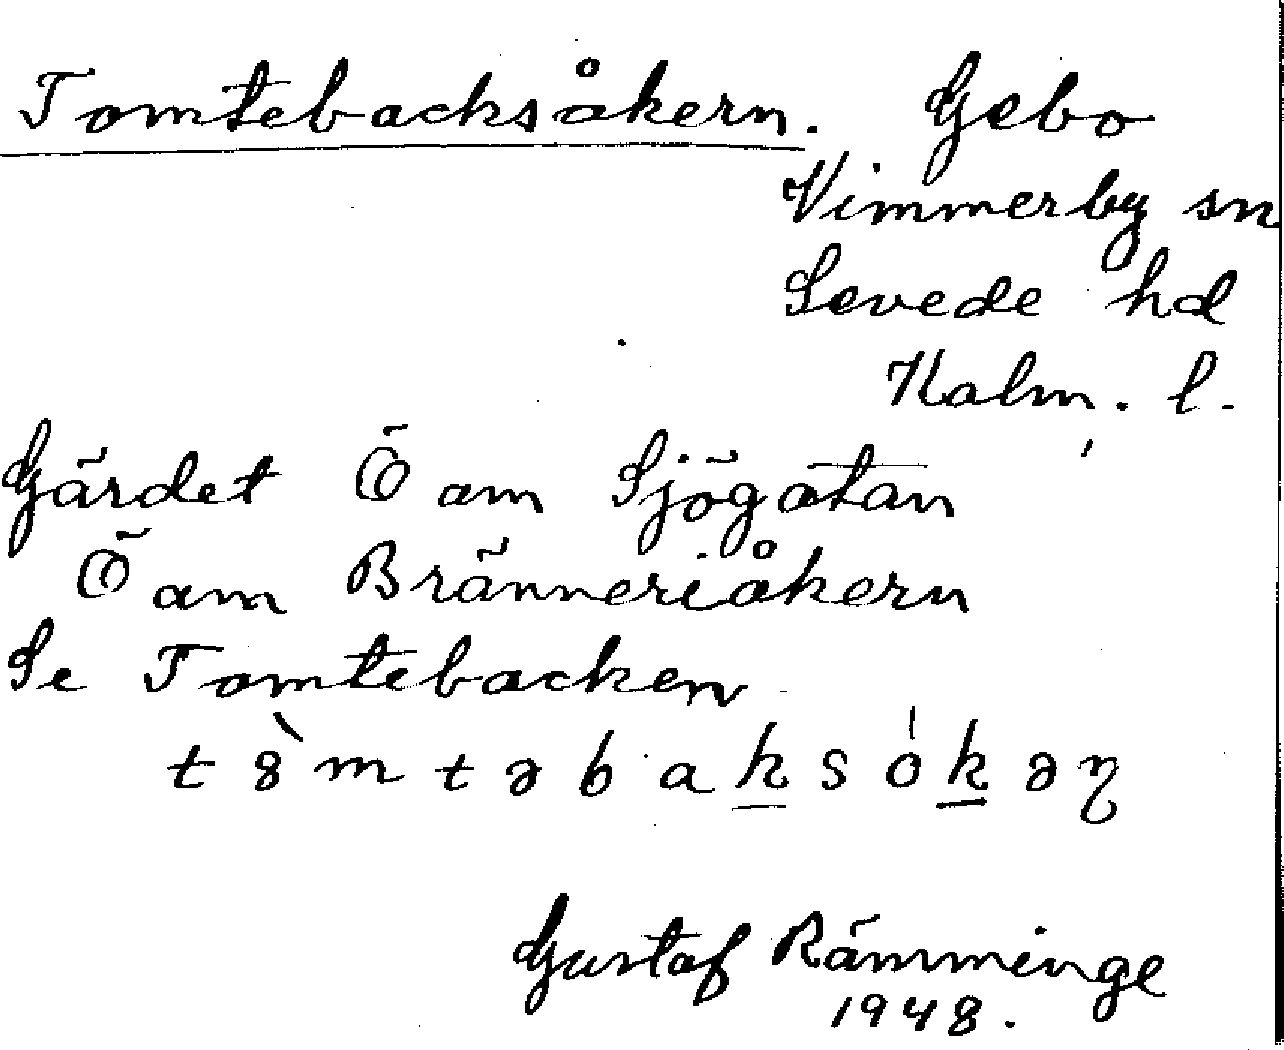 Tomtebacksåkern. Gebo
Vimmerby sn
Sevede hd
Kalm. l.
Gärdet Ö om Sjögatan
Ö om Bränneriåkern
Se Tomtebacken
t ȣ̀ m t ə b a k s ó k ə ɳ
Gustaf Rämminge
1948.